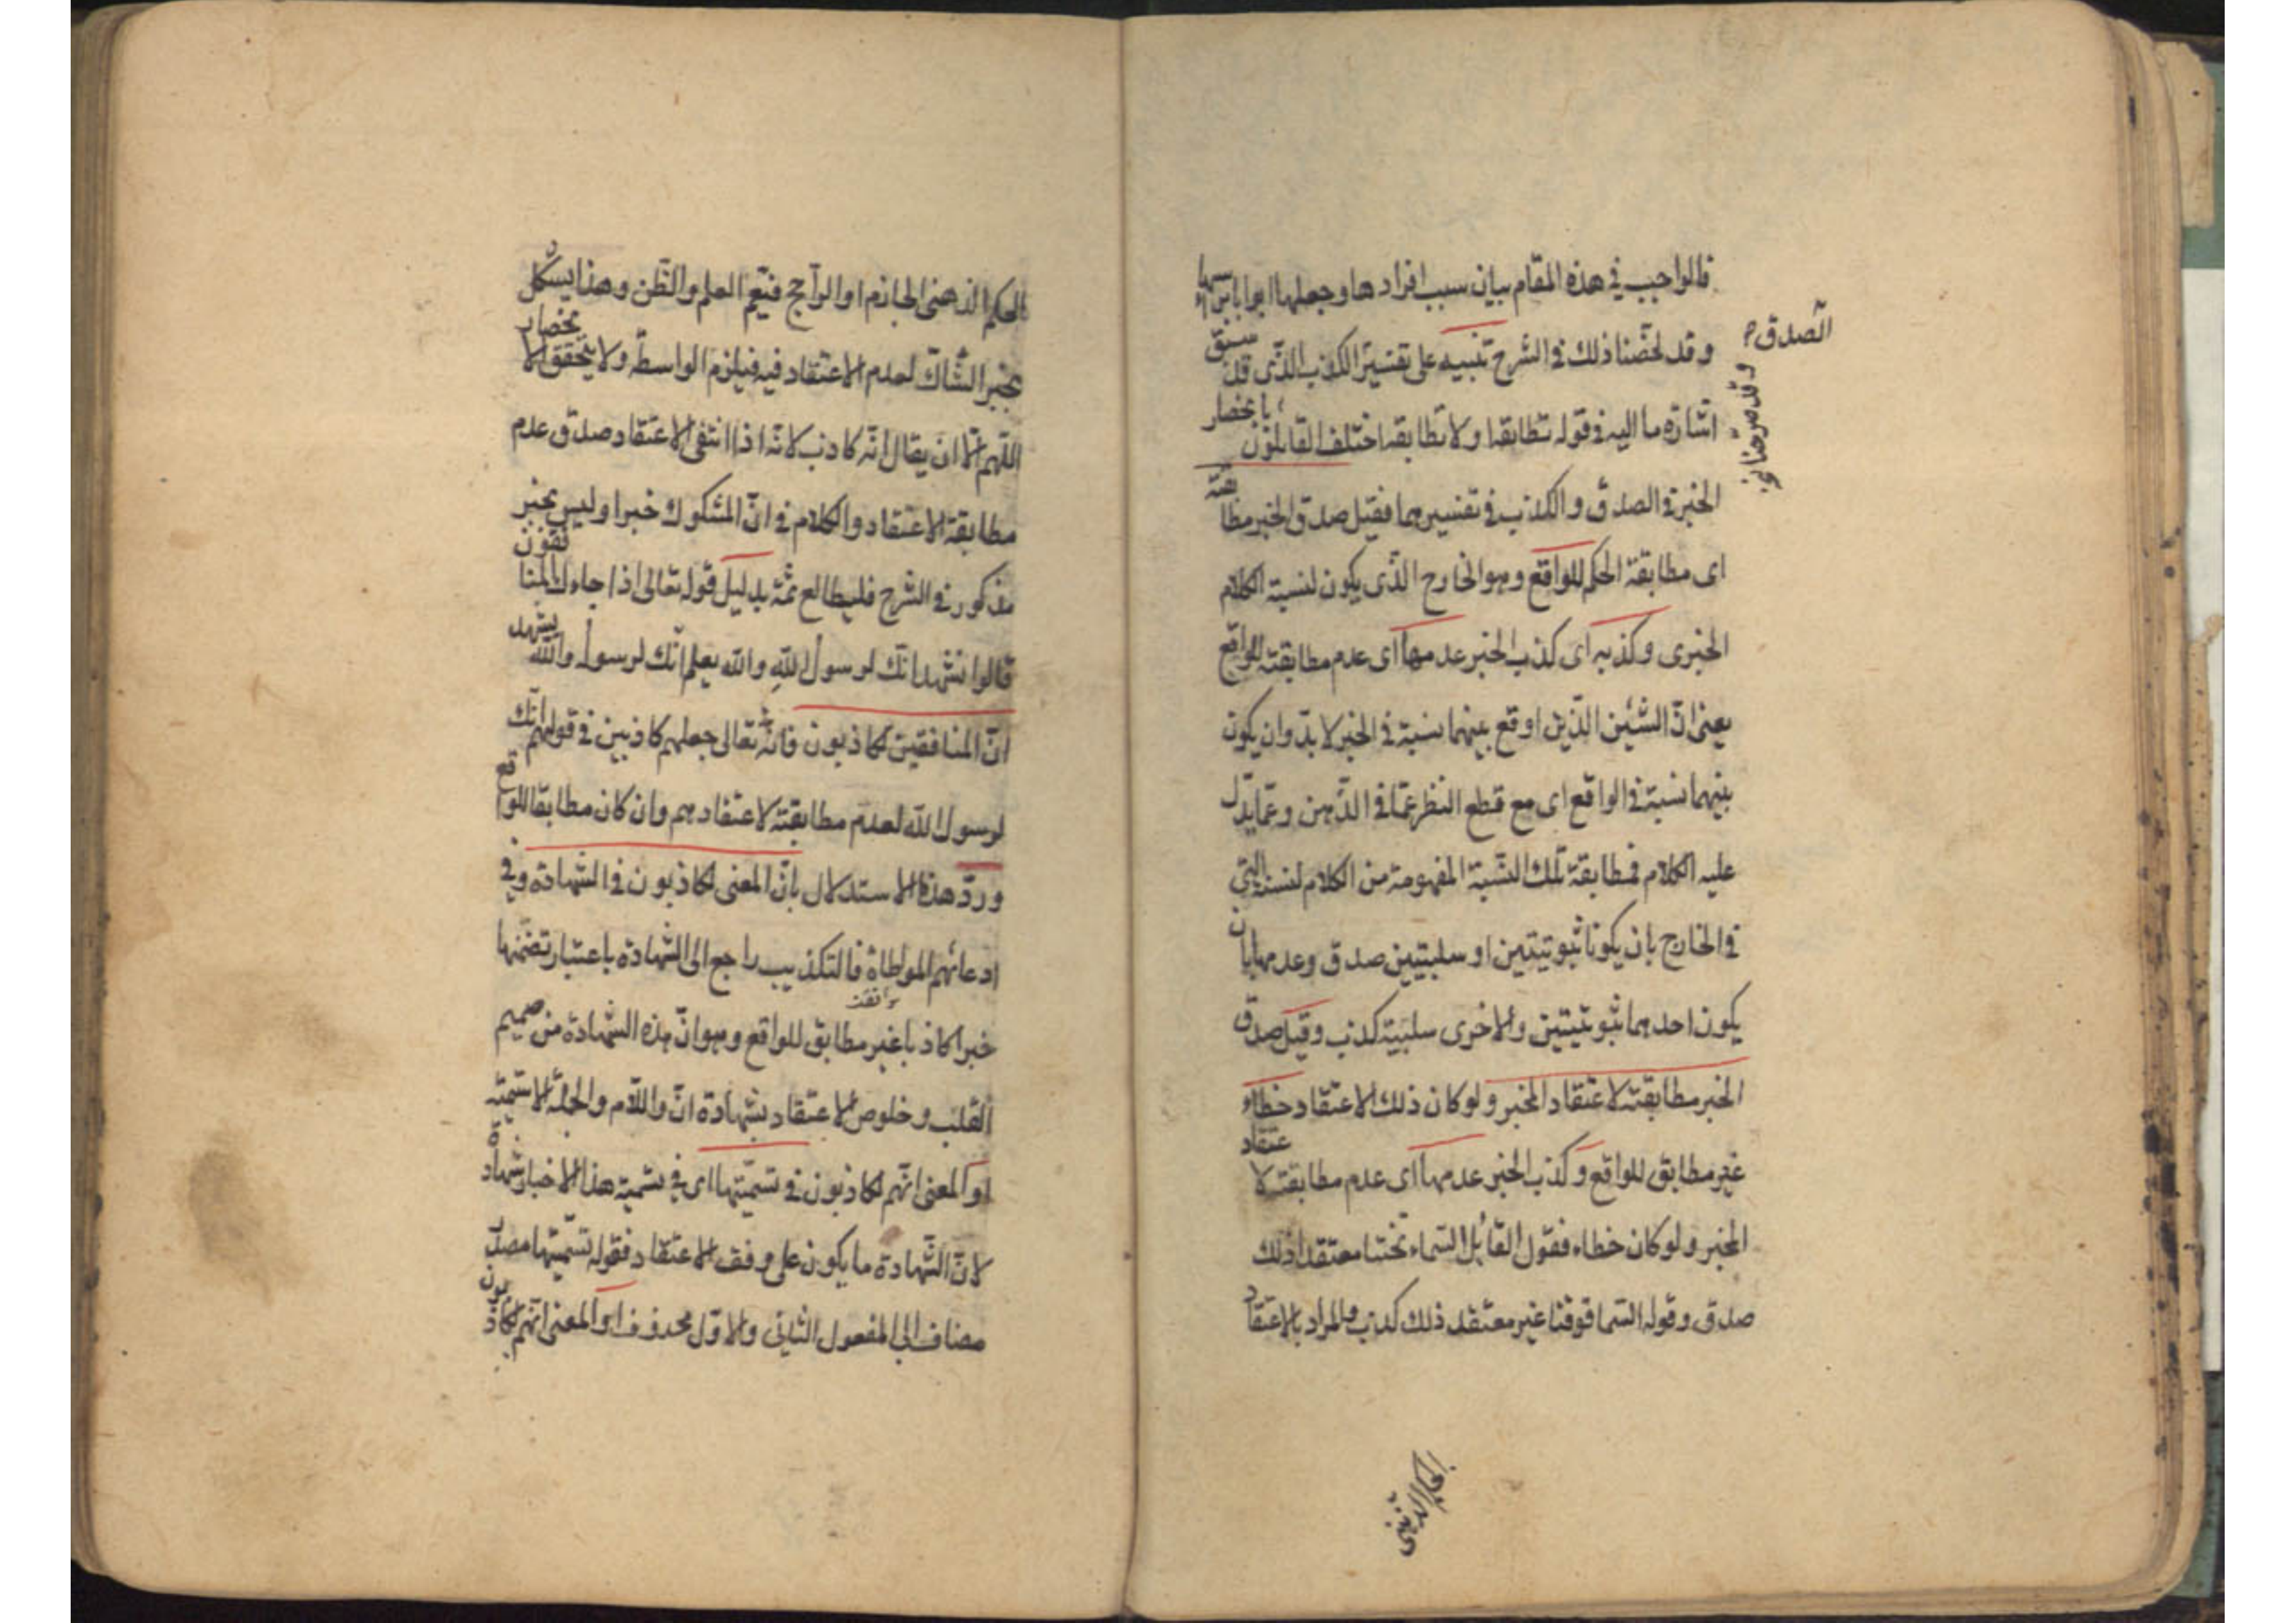 فالواجب في هذه المقام بيان سبب افرادها وجعلها ابوابا برأسها
وقد لخّصنا ذلك في الشرح تنبيه على تفسير الكذب الذّي قد سبق
اشارة ما اليه في قوله تطابقه اولا تطابقه اختلف القائلون بانحصار
الخبر في الصدق والكذب في تفسيرهما فقيل صدق الخبر مطابقته
اى مطابقة الحكم للواقع وهو الخارج الذّى يكون لنسبة الكلام
الخبرى وكذبه اى كذب الخبر عدمها اى عدم مطابقته للواقع
يعنى انّ الشئين الذّين اوقع بينهما نسبة في الخبر لا بدّ وان يكون
بينهما نسبة في الواقع اى مع قطع النظر عمّا في الذّهن وعمّا يدلّ
عليه الكلام فمطابقة تلك النسبة المفهومة من الكلام لنسبة التي
في الخارج بان يكونا ثبوتيتين او سلبيتين صدق وعدمها بان
يكون احدهما ثبوتيتين والاخرى سلبية كذب وقيل صدق
الخبر مطابقته لاعتقاد المخبر ولو كان ذلك الاعتقاد خطاء
غير مطابق للواقع وكذب الخبر عدمها اى عدم مطابقته لاعتقاد
المخبر ولو كان خطاء فقول القائل السماء تحتنا معتقدا ذلك
صدق وقوله السما فوقنا غير معتقد ذلك كذب والمراد بالاعتقاد
الصدق م
وقد صرحنا
الحكم الذهنى الجازم او الراجح فيعم العلم والظن وهذا يشكل
بخبر الشّاكّ لعدم الاعتقاد فيه فيلزم الواسطة ولا يتحقق الانحصار
اللّهم الّا ان يقال انّه كاذب لانّه اذا انتفى الاعتقاد صدق عدم
مطابقة الاعتقاد والكلام في انّ المشكوك خبر اوليس بخبر
مذكور في الشرح فليطالع ثمّة بدليل قوله تعالى اذا جاءك المنافقون
قالوا نشهد انّك لرسول الله والله يعلم انّك لرسوله والله يشهد
انّ المنافقين لكاذبون فانّه تعالى جعلهم كاذبين في قولهم انّك
لرسول الله لعدم مطابقته لاعتقادهم وان كان مطابقا للواقع
وردّ هذا الاستدلال بانّ المعنى لكاذبون في الشهادة وفي
ادعائهم المواطاة فالتكذيب راجع الى الشهادة باعتبار تضمّنها
خبرا كاذبا غير مطابق للواقع وهو انّ هذه الشهادة من صميم
القلب وخلوص الاعتقاد بشهادة انّ واللّام والجملة الاسميّة
او المعنى انّهم لكاذبون في تسميتها اى في تسمية هذا الاخبار شهادة
لانّ الشّهادة ما يكون على وفق الاعتقاد فقوله تسميتها مصدر
مضاف الى المفعول الثانى والاوّل محذوف او المعنى انّهم لكاذبون